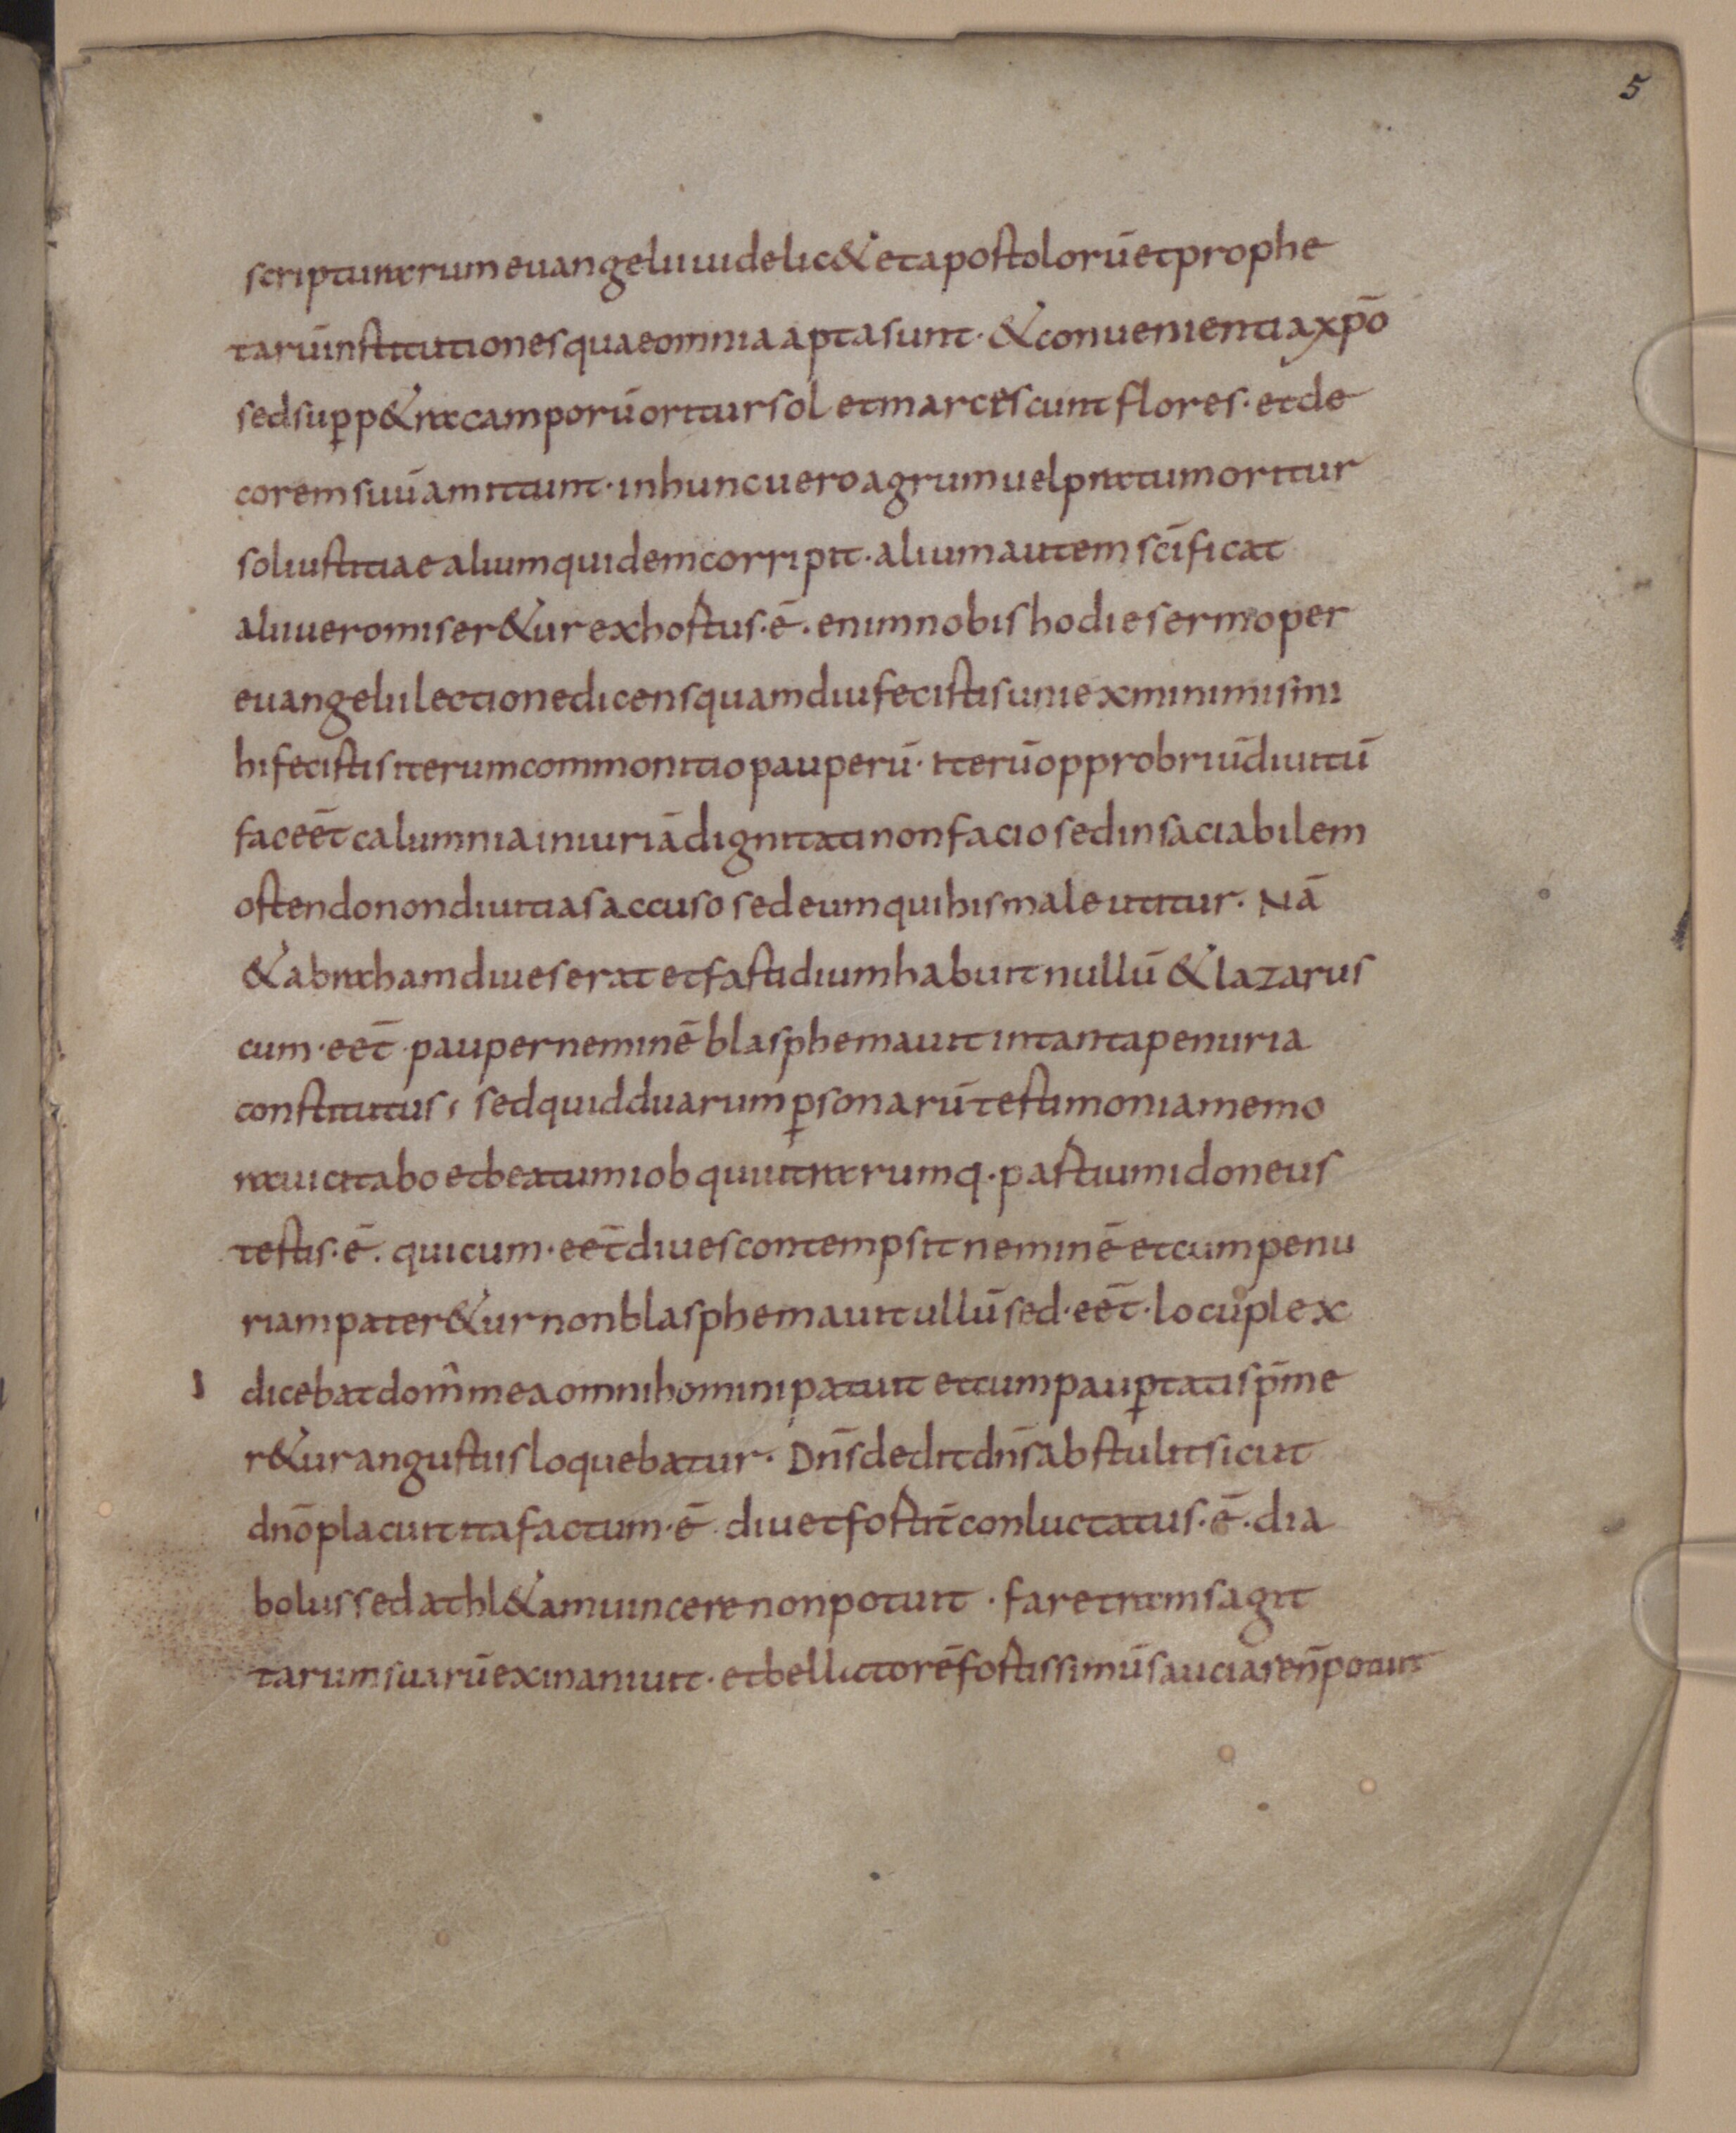 5
scripturarum euangelii uidelic& et apostolorū et prophe
tarū institutiones quae omnia apta sunt· & conuenientia xp̄o
sed sup̱ p&ra camporū oritur sol et marcescunt flores· et de
corem suū amittunt· in hunc uero agrum uel pratum oritur
sol iustitiae alium quidem corripit· alium autem sc̄ificat
alii uero miser&ur exhostus·ē· enim nobis hodie sermo per
euangelii lectione dicens quamdiu fecistis uni ex minimis mi
hi fecistis iterum commonitio pauperū· iterū opprobriū diuitū
faceēt calumnia iniuriā dignitati non facio sed insaciabilem
ostendo non diuitias accuso sed eum qui his male utitur· Nā
& abraham diues erat et fastidium habuit nullū & lazarus
cum·eēt pauper neminē blasphemauit in tanta penuria
constitutus; sed quid duarum p̱sonarū testimonia memo
raui citabo et beatum iob qui utrarumq·pastium idoneus
testis·ē· qui cum·eēt diues contempsit neminē et cum penu
riam pater&ur non blasphemauit ullū sed·eēt·locuplex
dicebat dom̄ mea omni homini patuit et cum paup̱tatis p̄me
r&ur angustiis loquebatur· Dn̄s dedit dn̄s abstulit sicut
dn̄o placuit ita factum·ē diu et fostit̄ conluctatus·ē·dia
bolus sed athl&am uincere non potuit · faretram sagit
tarum suarū exinaniuit· et bellictorē fostissimū sauciare n̄ potuit